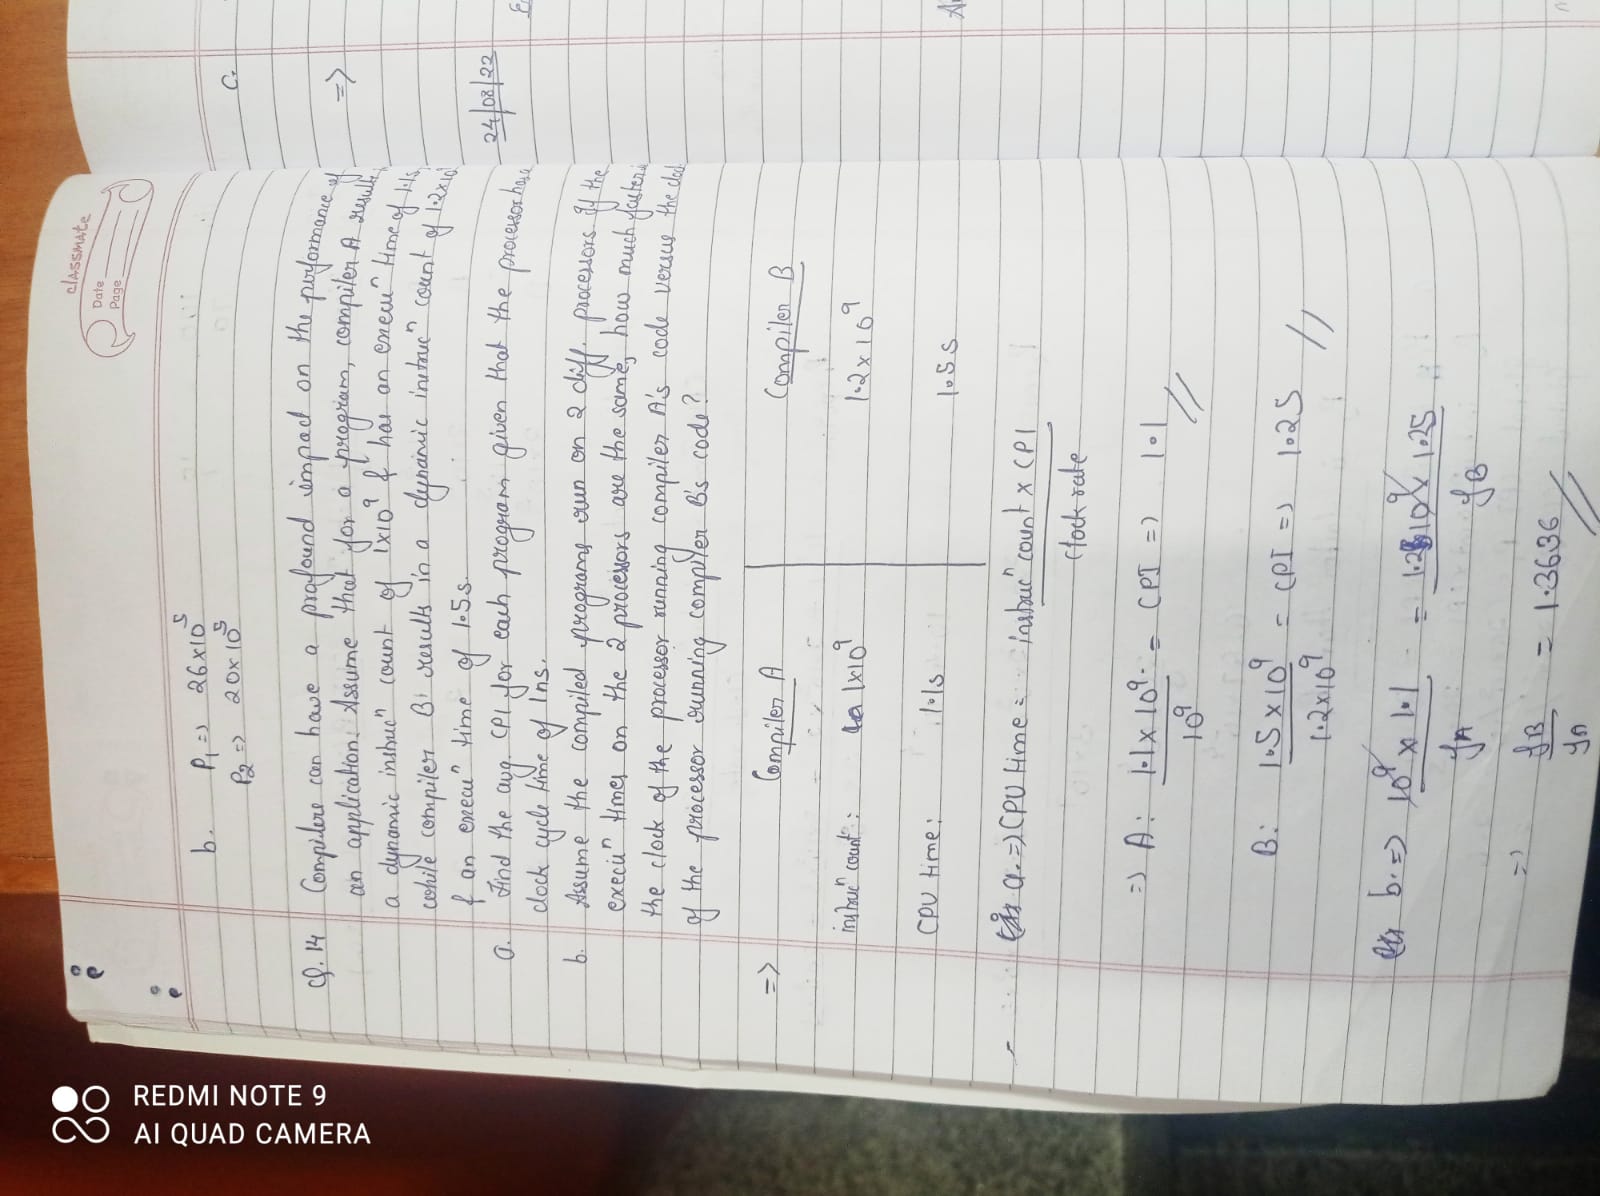 classmate
Date
Page
b. P1 => 26x10^5
P2 => 20x10^5
Q.14 Compilers can have a profound impact on the performance of
an application. Assume that for a program, compiler A results
a dynamic instrucⁿ count of 1x10^9 & has an execuⁿ time of 1.1s,
while compiler B results in a dynamic instrucⁿ count of 1.2x10
& an execuⁿ time of 1.5s.
a. Find the avg. CPI for each program given that the processor has a
clock cycle time of 1ns.
b. Assume the compiled programs run on 2 diff. processors. If the
execuⁿ times on the 2 processors are the same, how much faster is
the clock of the processor running compiler A's code versus the cloc
of the processor running compiler B's code?
=> Compiler A Compiler B
instrucⁿ count: 1x10^9 1.2x10^9
CPU time: 1.1s 1.5s
a. => CPU time = instrucⁿ count x CPI
Clock rate
=> A: 1.1 x 10^9 = CPI => 1.1 //
10^9
B: 1.5 x 10^9 = CPI => 1.25 //
1.2x10^9
b. => 10^9 x 1.1 = 1.2x10^9 x 1.25
fA fB
=> fB = 1.3636 //
fA
c.
=>
24/08/22
REDMI NOTE 9
AI QUAD CAMERA